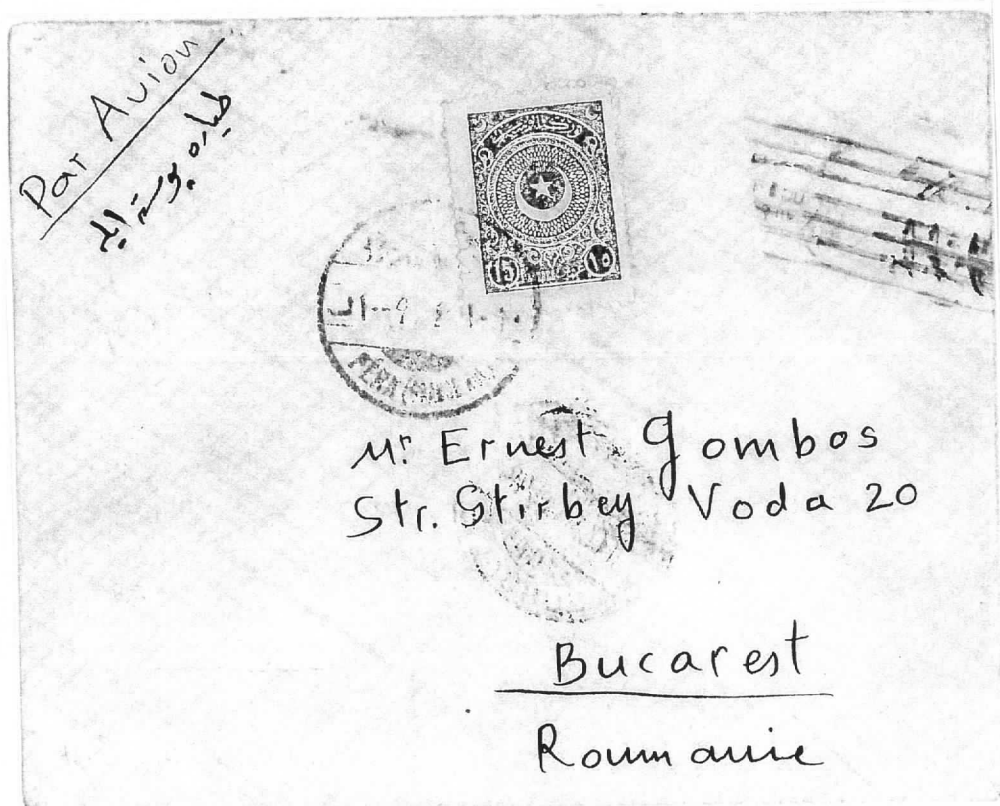 Par Avion
طیاره پوسته ایله
15 ١٥
PÉRA
Mr. Ernest Gombos
Str. Stirbey Voda 20
Bucarest
Roumanie